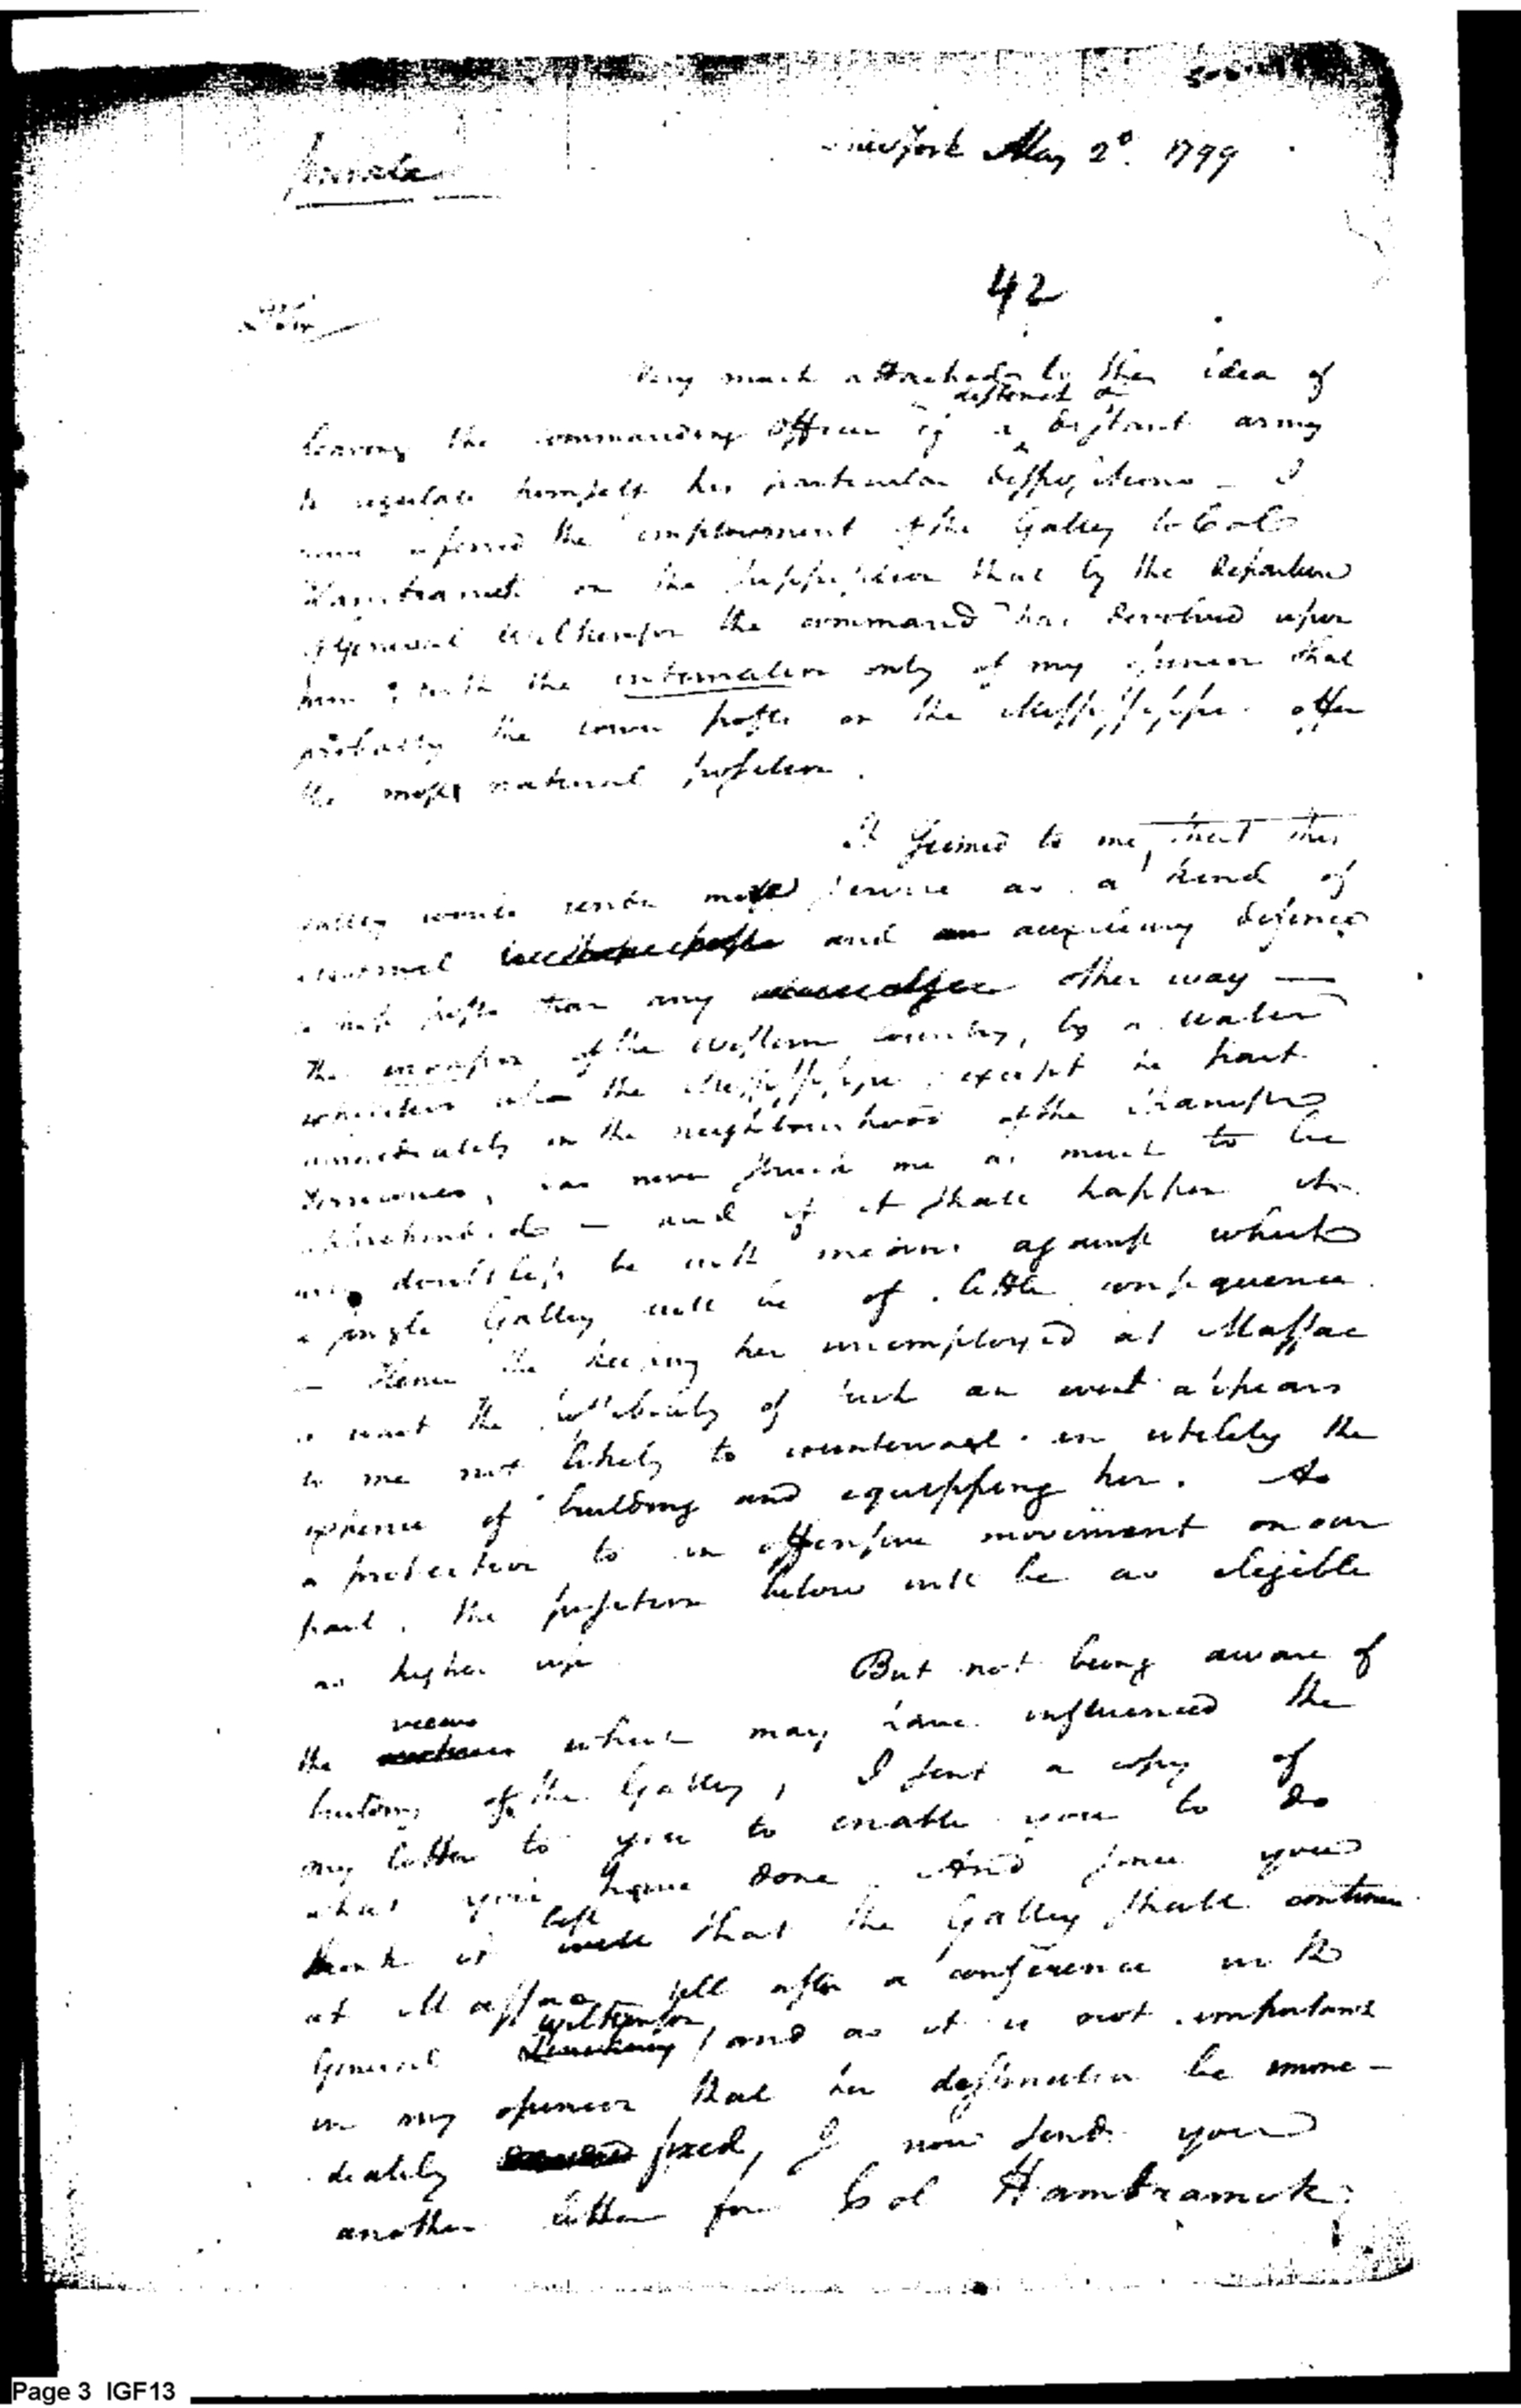 Private
New York May 2d. 1799
42
Sir
Very much attached to the idea of
different or
leaving the commanding officer of a distant army
to regulate himself his particular dispositions – I
have referred the employment of the Galley to Col
Hamtramck on the supposition that by the departure
of General Wilkinson the command has devolved upon
him; with the intimation only of my opinion that
probably the lower posts on the Mississippi offer
the most natural position.
It seemed to me, that this
galley would render more service as a kind of
and auxiliary defence
posts than any other way —
the invasion of the western country, by a water
the Mississippi, except in part
immediately in the neighbourhood of the transfer
has never struck me as much to be
apprehended – and if it shall happen it
may doubtless be with means against which
a single Galley will be of little consequence.
– Hence the keeping her unemployed at Massac
to wait the possibility of such an event appears
to me not likely to countervail in utility the
expence of building and equipping her. As
a protection to an offensive movement on our
part, the position below will be as eligible
as higher up
But not being aware of
views
the which may have influenced the
building of the Galley, I sent a copy of
my letter to you to enable you to do
what you have done. And since you
best
think it well that the Galley shall continue
at Massac till after a conference with
Wilkinson,
General and as it is not important
in my opinion that her destination be imme-
diately fixed, I now send you
another letter for Col Hamtramck;
Page 3 IGF13